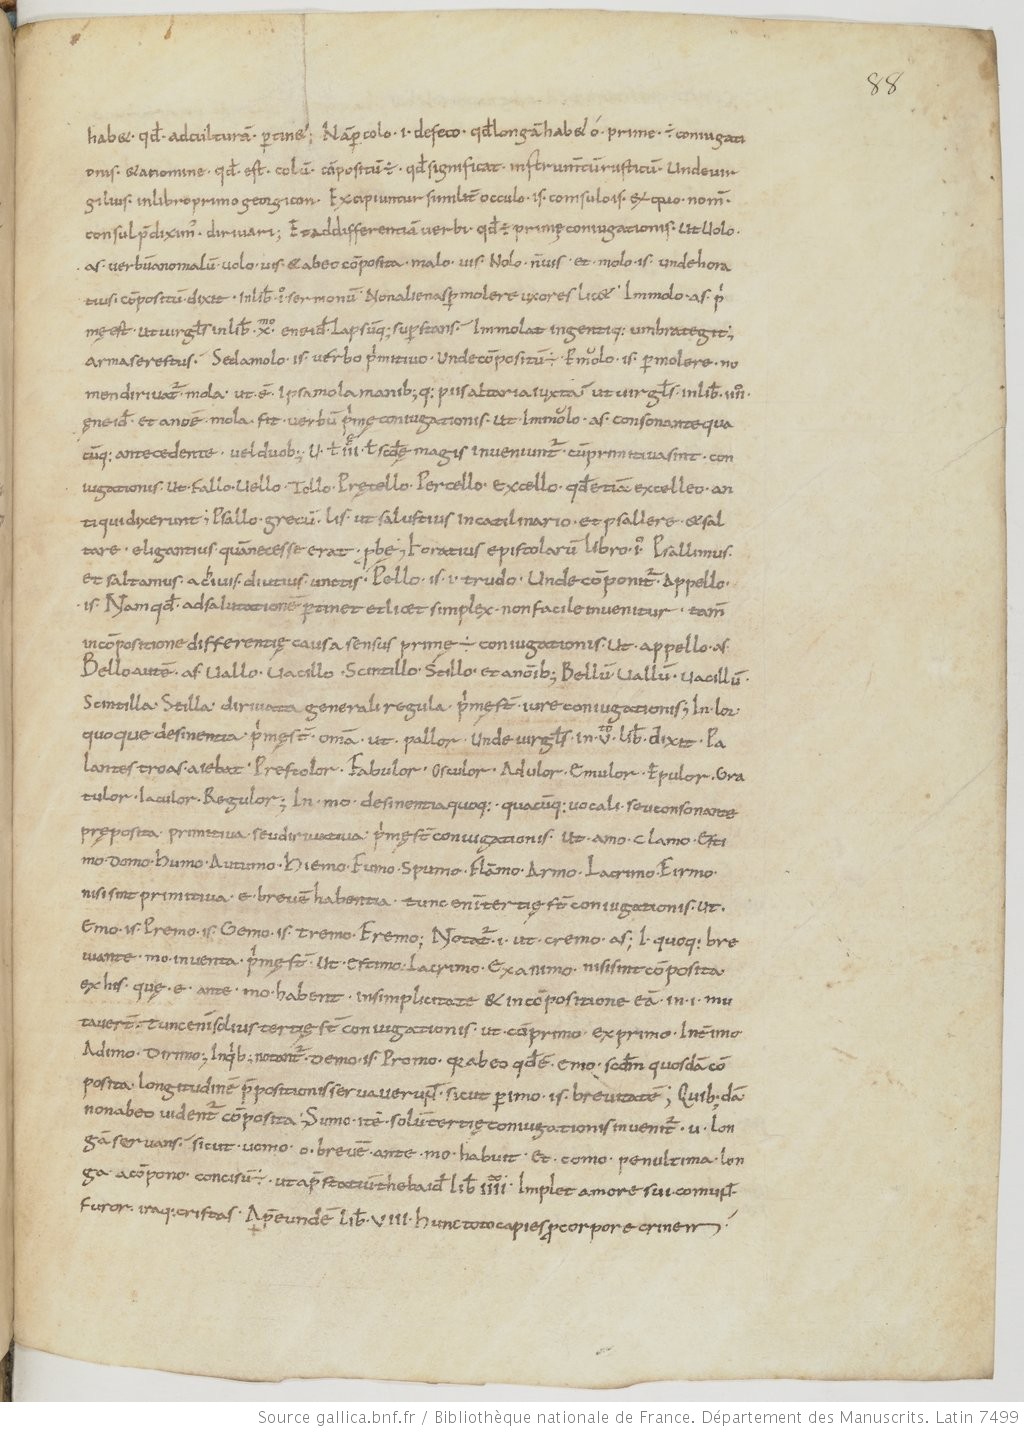 88
hab&· qđ· adculturā· ꝑtin&; Nāꝑcolo· i· defeco· qđlongāhab& ó· prime· ÷ coniugati
onis· &anomine· qđ· est· colū· cāpositū÷· qđsignificat· instrumtūrusticū· Undeuir
gilius· inlibroprimo georgicon· Excipiuntur similit̄ occulo· is· consulo is· exquo· nom̄·
consul p̄dixim᾽· diriuari; Etaddifferentiā uerbi· qđ ÷ primę coniugationis· Ut Uolo·
as· uerbūanomalū· uolo· uis· &abeo cōposita· malo· uis· Nolo· n̄uis· et· molo· is· undehora
tius· cōpositū dixit· inlib̄· i᾽· sermonū· Nonalienasꝑmolere uxores lic&· Immolo· as· p̄
męest· ut uirgl̄s inlib̄· x· eneid̄· Lapsūq; suꝑstans· Immolat ingentiq: umbrategit;
arma serestus· Sedamolo· is· uerbo p̄mitiuo· Undecōpositū÷ Emolo· is· ꝑmolere· no
men diriuat᾽· mola· ut· ē· Ipsamola manib; q: piis altaria iuxta· ut uirgl̄s· inlib̄· iiii·
ęneid̄· et anoē· mola· fit· uerbū p̄mę coniugationis· ut Immolo· as· consonantequa
cūq: antecedente· uelduob; U· ł iii ł scdę magis inueniunt᾽· cūprimitiuasint· con
iugationis· ut Fallo· Uello· Tollo· Prętello· Percello· excello· qđetiā excelleo· an
tiqui dixerunt; Psallo· grecū· lis· ut salustius incatilinario· et psallere· &sal
tare· eligantius quānecesse erat· pbę; horatius epistolarū libro· i᾽· Psallimus·
et saltamus· achiuis· diutius· unctis· Pello· is· i· trudo· Unde cōponit᾽· Appello·
is· Namqđ· adsalutationē ꝑtinet etlicet simplex· nonfacile inuenitur· tam̄
incōpositione differentię causa sensus prime ÷ coniugationis· Ut· appello· as·
Bello autē· as Uallo· Uacillo· Scintillo· Stillo· et anoīb; Bellū· Uallū· Uacillū·
Scintilla· Stilla· diriuata generali regula· p̄męst̄· iure coniugationis; In· lor
quoque desinentia p̄męst̄· omā· ut· pallor· Unde uirgl̄s· in· v· lib̄· dixit· Pa
lantes troas· aiebat· Prestolor· Fabulor· Osculor· Adulor· Emulor· Epulor· Gra
tulor· Iaculor· Regulor; In· mo· desinentiaquoq: quacūq: uocali· seuconsonante
pręposita· primitiua· seudiriuatiua· p̄męst̄ coniugationis· Ut· amo· Clamo· Esti
mo· Domo· Humo· Autumo· Hiemo· Fumo· Spumo· Flāmo· Armo· Lacrimo· Firmo·
nisi sint primitiua· e· breuē habentia· tunc eni᾽ tertię st̄ coniugationis· Ut·
Emo· is· Premo· is· Gemo· is· tremo· Fremo; Notat᾽· i· ut· cremo· as; l· quoq: bre
uiante· mo· inuenta· p̄męst̄· Ut· Estimo· Lacrimo· Exanimo· nisisint cōposita
ex his· quę· e· ante· mo· habent· insimplicitate &incōpositione eā in· i· mu
tauert̄· Tunceni᾽ illius tertię st̄ coniugationis· ut· cōprimo· exprimo· Int̄imo
Adimo· Dirimo; Inq̄b; notant᾽· Demo· is· Promo· q̄a abeo qđē· emo· scdm quosdā cō
posita· longitudinē p̄positionisseruauer̄· sicut ꝑimo· is· breuitatē; Quib;dā
nonabeo uident᾽ cōposita· Sumo· itē· solūtertię coniugationis inuenit᾽· u· lon
gā seruans· sicut· uomo· o· breuē· ante· mo· habuit· Et· como· penultima· lon
ga· acōpono· concisū÷· ut ap̄ statiūthebaid̄· lib̄· iiii· Implet amore sui· comūt̄·
Furor· iraq: cristas· Ap̄eundē lib̄· viii· Hunctotocapiesꝓcorpore crinem·
Source gallica.bnf.fr / Bibliothèque nationale de France. Département des Manuscrits. Latin 7499